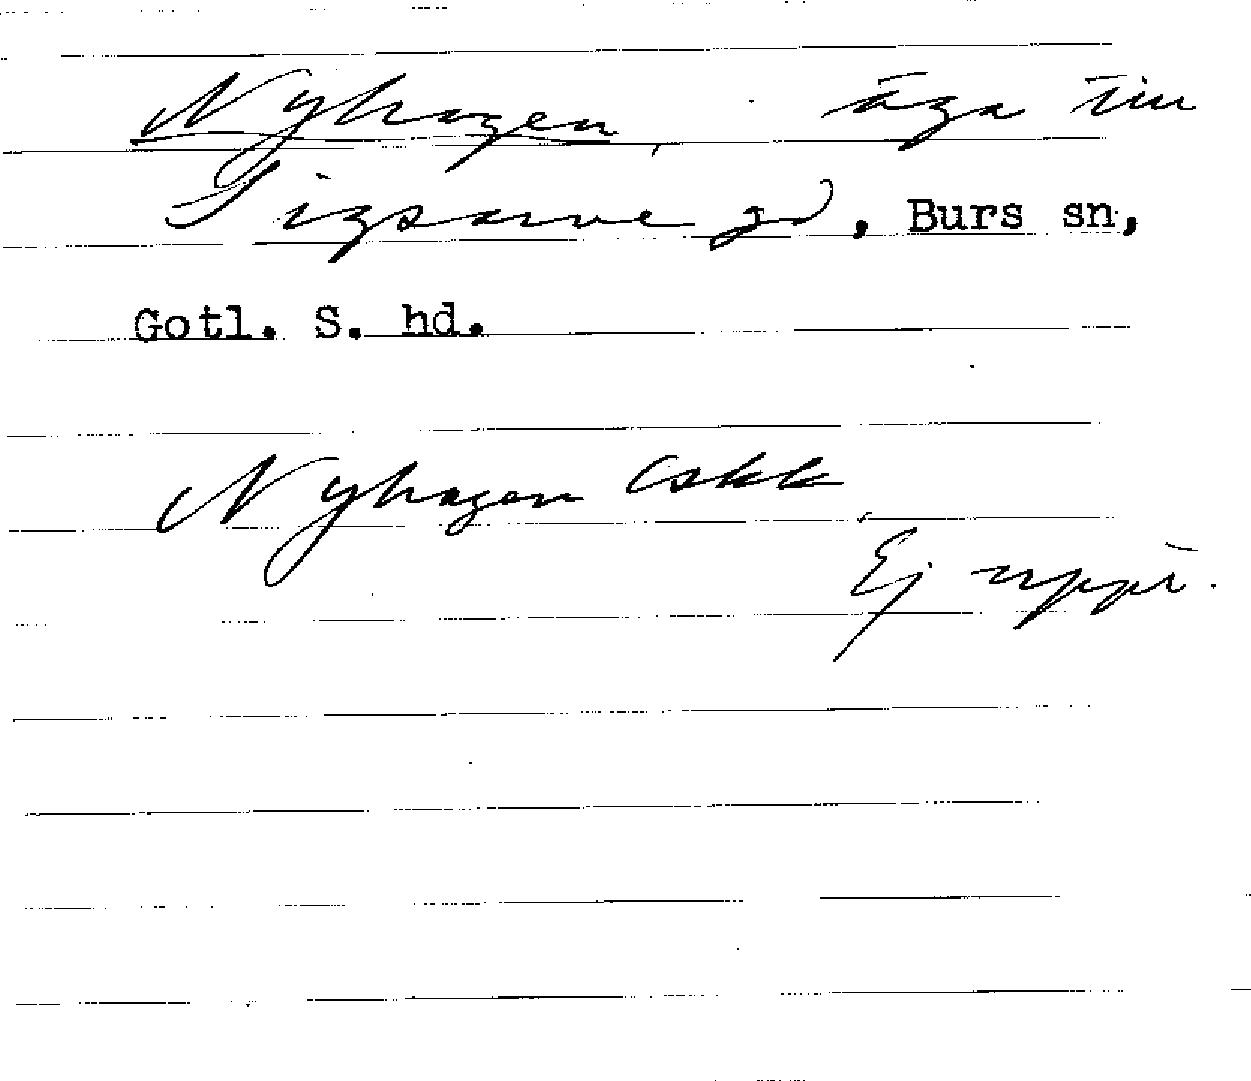 Nyhagen, äga till
Sigsarve gd, Burs sn,
Gotl. S. hd.
Nyhagen
Ej uppt.